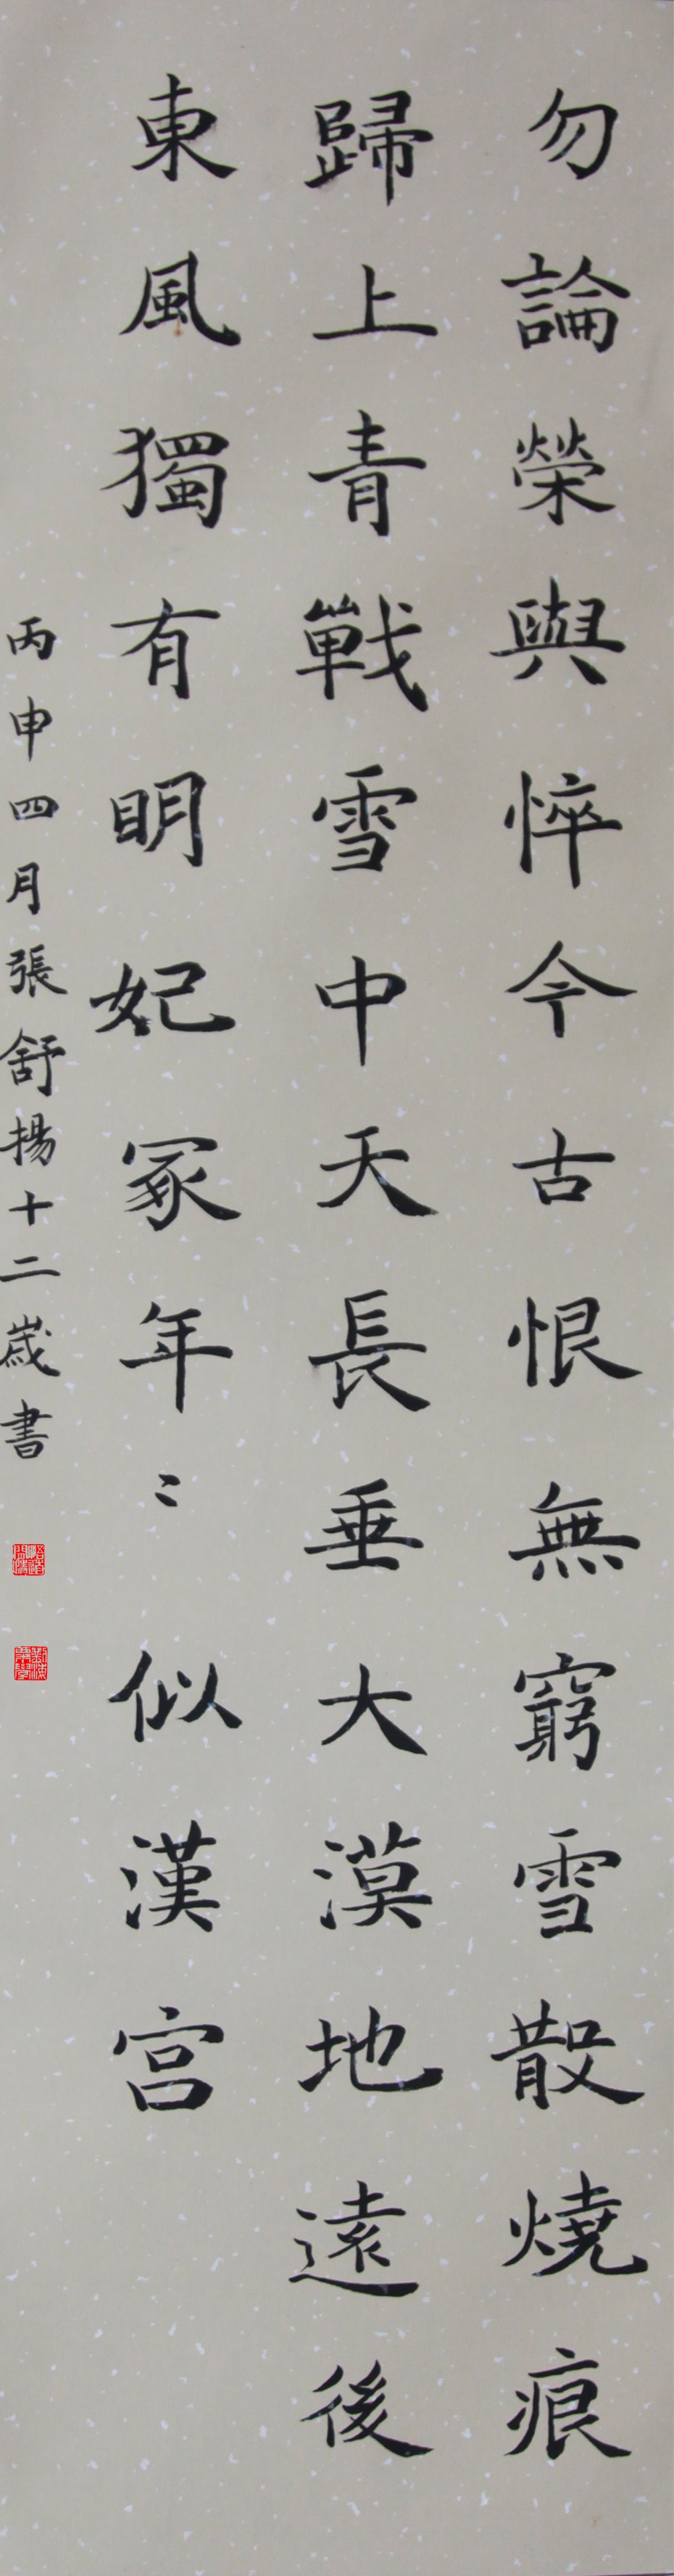 勿論榮與悴今古恨無窮雪散燒痕
歸上青戰雪中天長垂大漠地遠後
東風獨有明妃冢年〻似漢宮
丙申四月張舒揚十二歲書